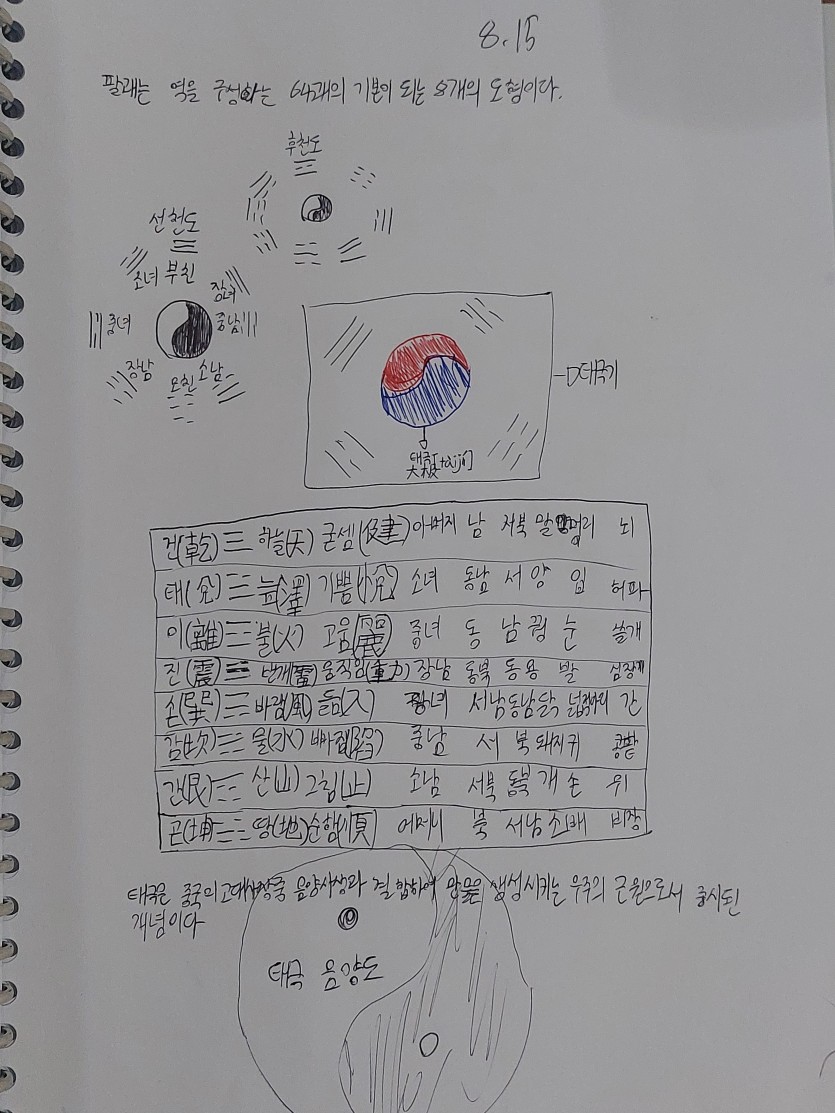 8.15
팔괘는 역을 구성하는 64괘의 기본이 되는 8개의 도형이다.
후천도
선천도
소녀 부친
장녀
중녀
중남
장남
모친 소남
태극기
[taiji]
건(乾)☰ 하늘(天) 굳셈(健) 아버지 남 서북 말 머리 뇌
태(兌)☱ 늪(澤) 기쁨(悅) 소녀 동남 서 양 입 허파
이(離)☲ 불(火) 고움(麗) 중녀 동 남 꿩 눈 쓸개
진(震)☳ 번개(雷) 움직임(動) 장남 동북 동 용 발 심장
손(巽)☴ 바람(風) 들임(入) 장녀 서남 동남 닭 넓적다리 간
감(坎)☵ 물(水) 빠짐(陷) 중남 서 북 돼지 귀 콩팥
간(艮)☶ 산(山) 그침(止) 소남 서북 동북 개 손 위
곤(坤)☷ 땅(地) 순함(順) 어머니 북 서남 소 배 비장
태극은 중국의 고대사상중 음양사상과 결합하여 만물을 생성시키는 우주의 근원으로서 중시된
개념이다
태극 음양도